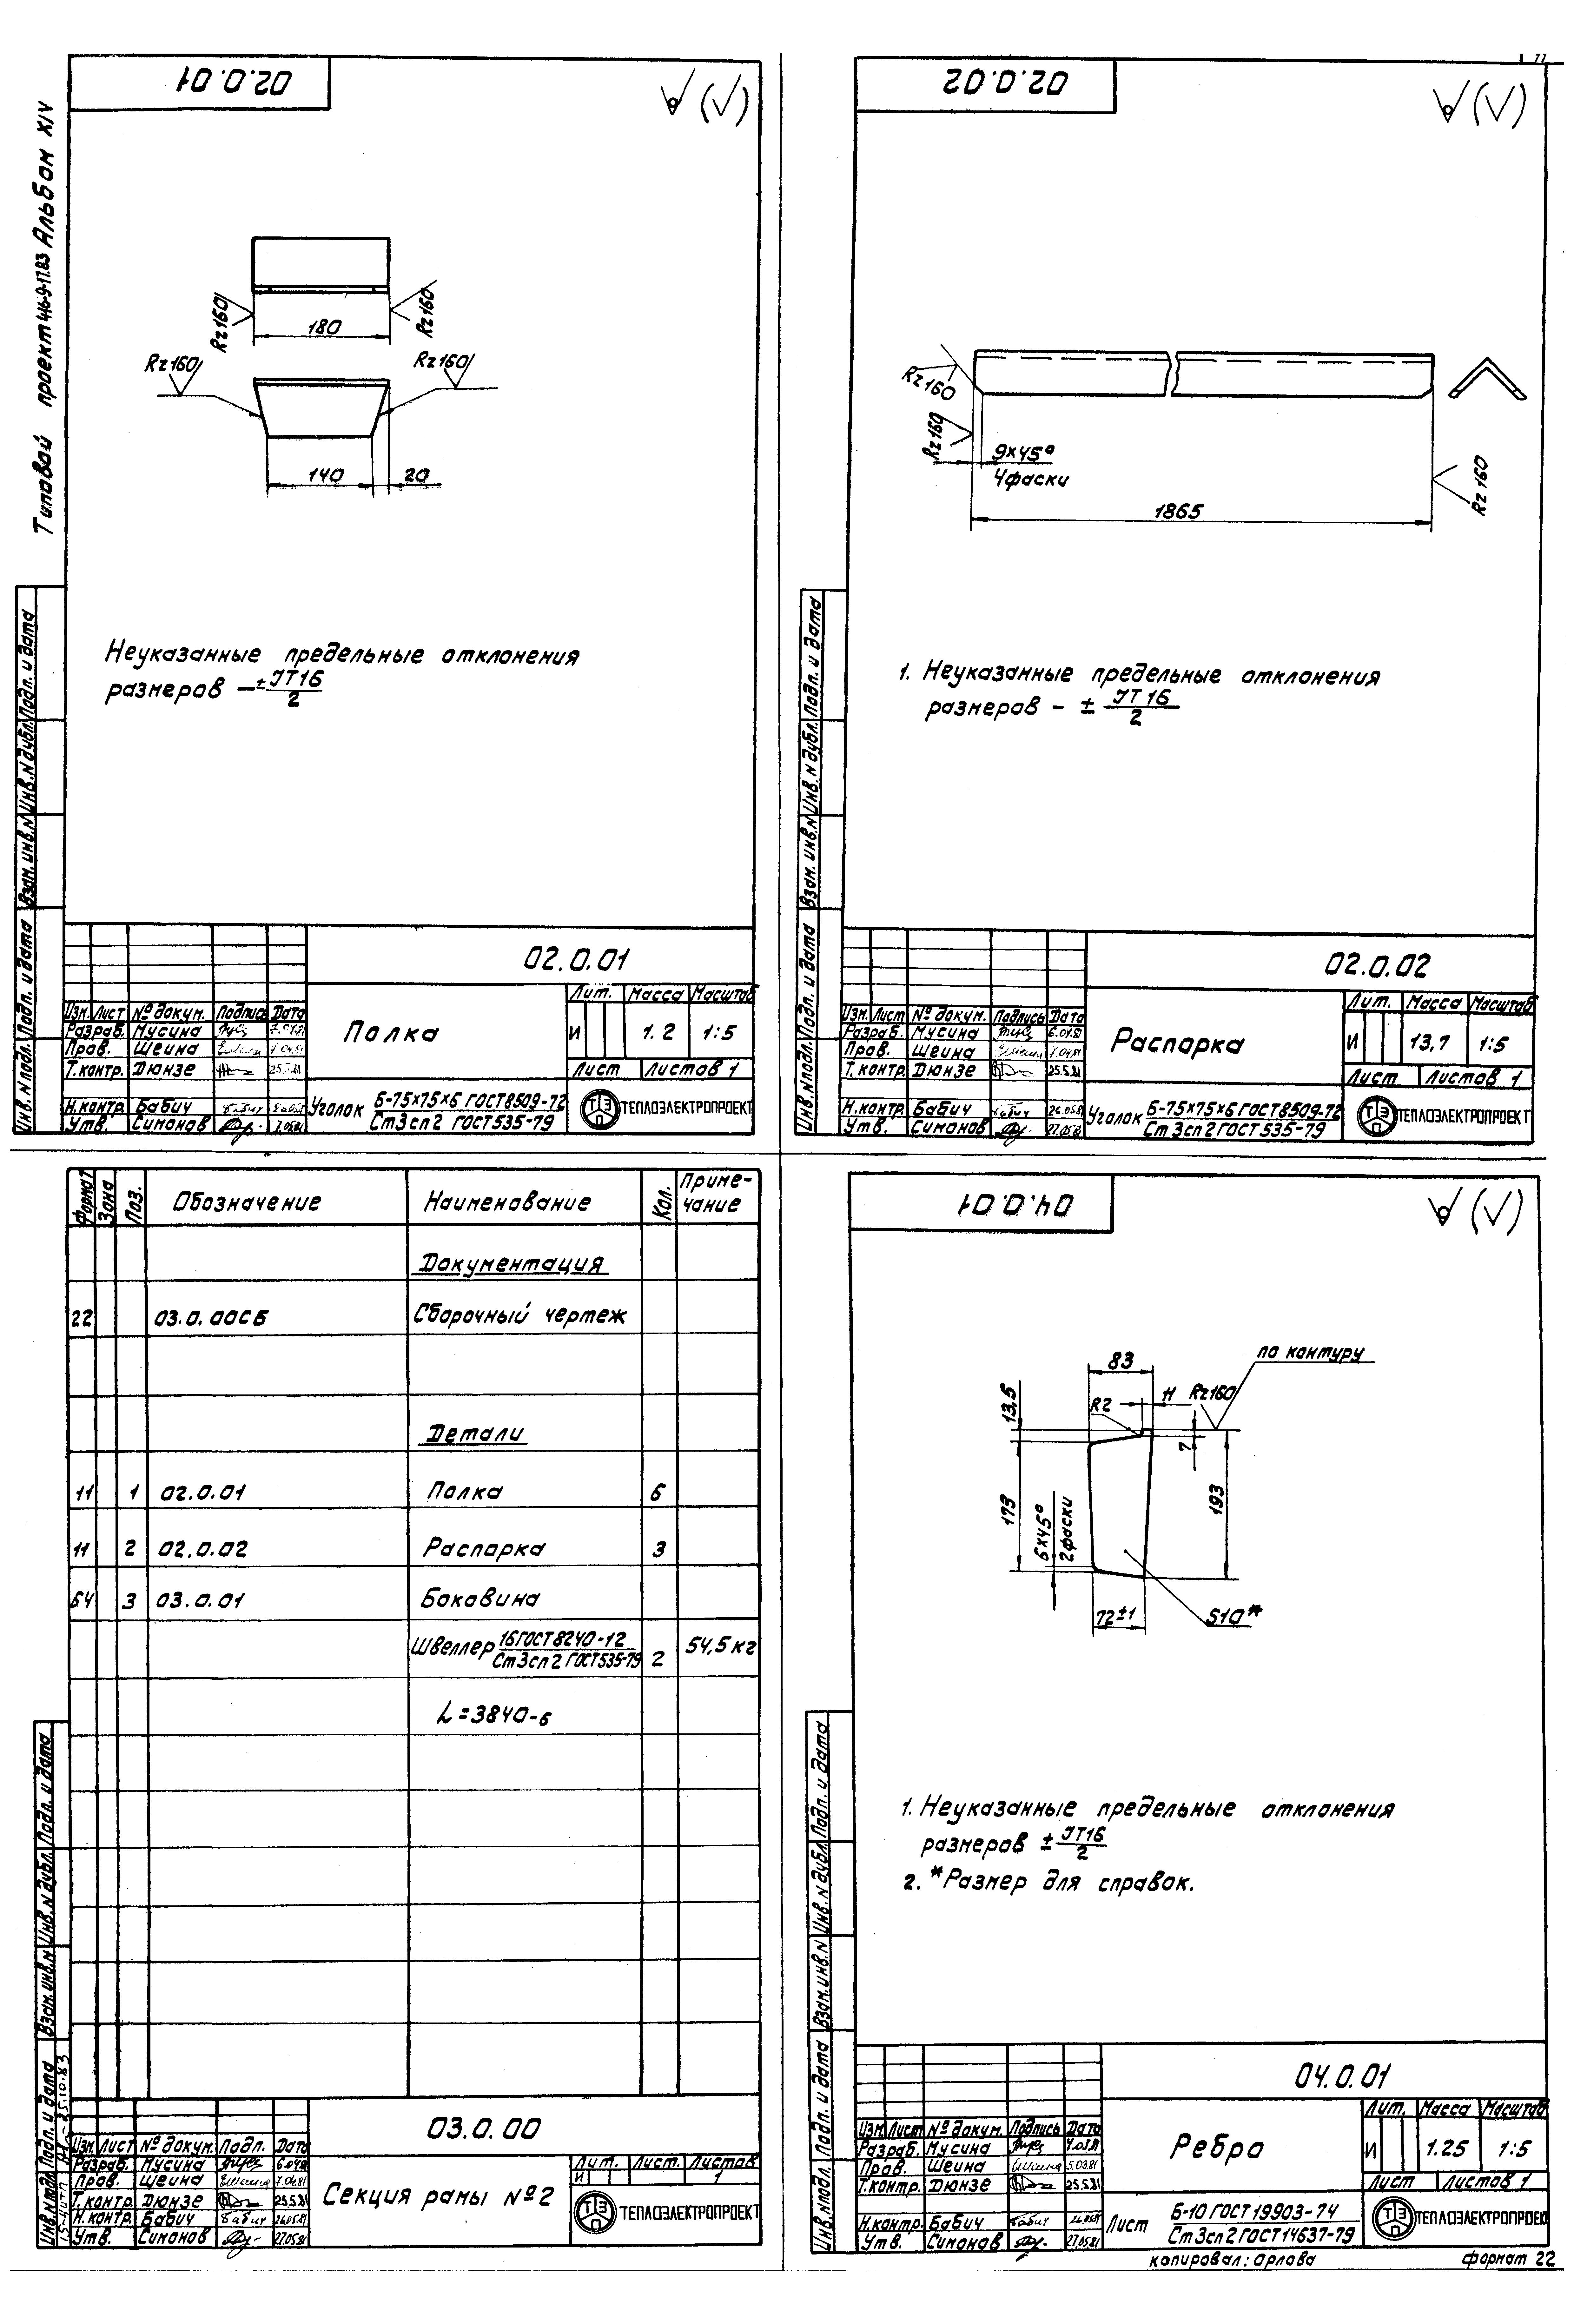 Типовой проект 416-9-17.83 Альбом XIV
02.0.01
Rz160
Rz160
180
Rz160
Rz160
140
20
Неуказанные предельные отклонения
размеров - ± IT16/2
Инв.N подл. Подп. и дата Взам. инв.N Инв.N дубл. Подп. и дата
02.0.01
Изм. Лист № докум. Подпись Дата
Разраб. Мусина
Пров. Шеина
Т.контр. Дюнзе
Н.контр. Бабич
Утв. Симонов
Полка
Лит. Масса Масштаб
И 1.2 1:5
Лист Листов 1
Уголок Б-75х75х6 ГОСТ 8509-72
Ст3сп2 ГОСТ 535-79
ТЭП ТЕПЛОЭЛЕКТРОПРОЕКТ
77
02.0.02
Rz160
Rz160
9х45°
4 фаски
Rz160
1865
1. Неуказанные предельные отклонения
размеров - ± IT16/2
Инв.N подл. Подп. и дата Взам. инв.N Инв.N дубл. Подп. и дата
02.0.02
Изм. Лист № докум. Подпись Дата
Разраб. Мусина
Пров. Шеина
Т.контр. Дюнзе 25.5.81
Н.контр. Бабич 26.05.81
Утв. Симонов 27.05.81
Распорка
Лит. Масса Масштаб
И 13,7 1:5
Лист Листов 1
Уголок Б-75х75х6 ГОСТ 8509-72
Ст3сп2 ГОСТ 535-79
ТЭП ТЕПЛОЭЛЕКТРОПРОЕКТ
Формат Зона Поз. Обозначение Наименование Кол. Примечание
Документация
22 03.0.00СБ Сборочный чертеж
Детали
11 1 02.0.01 Полка 6
11 2 02.0.02 Распорка 3
БЧ 3 03.0.01 Боковина
Швеллер 16 ГОСТ 8240-72
Ст3сп2 ГОСТ 535-79 2 54,5 кг
L=3840-6
Инв.N подл. Подп. и дата Взам. инв.N Инв.N дубл. Подп. и дата
25.10.83
03.0.00
Изм. Лист № докум. Подп. Дата
Разраб. Мусина
Пров. Шеина
Т.контр. Дюнзе 25.5.81
Н.контр. Бабич 26.05.81
Утв. Симонов 27.05.81
Секция рамы №2
Лит. Лист. Листов
И 1
ТЭП ТЕПЛОЭЛЕКТРОПРОЕКТ
04.0.01
по контуру
83
11
Rz160
R2
13,5
7
173
193
6х45°
2 фаски
72±1
S10*
1. Неуказанные предельные отклонения
размеров ± IT16/2
2. *Размер для справок.
Инв.N подл. Подп. и дата Взам. инв.N Инв.N дубл. Подп. и дата
04.0.01
Изм. Лист № докум. Подпись Дата
Разраб. Мусина
Пров. Шеина 5.03.81
Т.контр. Дюнзе 25.5.81
Н.контр. Бабич
Утв. Симонов 27.05.81
Ребро
Лит. Масса Масштаб
И 1.25 1:5
Лист Листов 1
Лист Б-10 ГОСТ 19903-74
Ст3сп2 ГОСТ 14637-79
ТЭП ТЕПЛОЭЛЕКТРОПРОЕК
копировал: Орлова формат 22